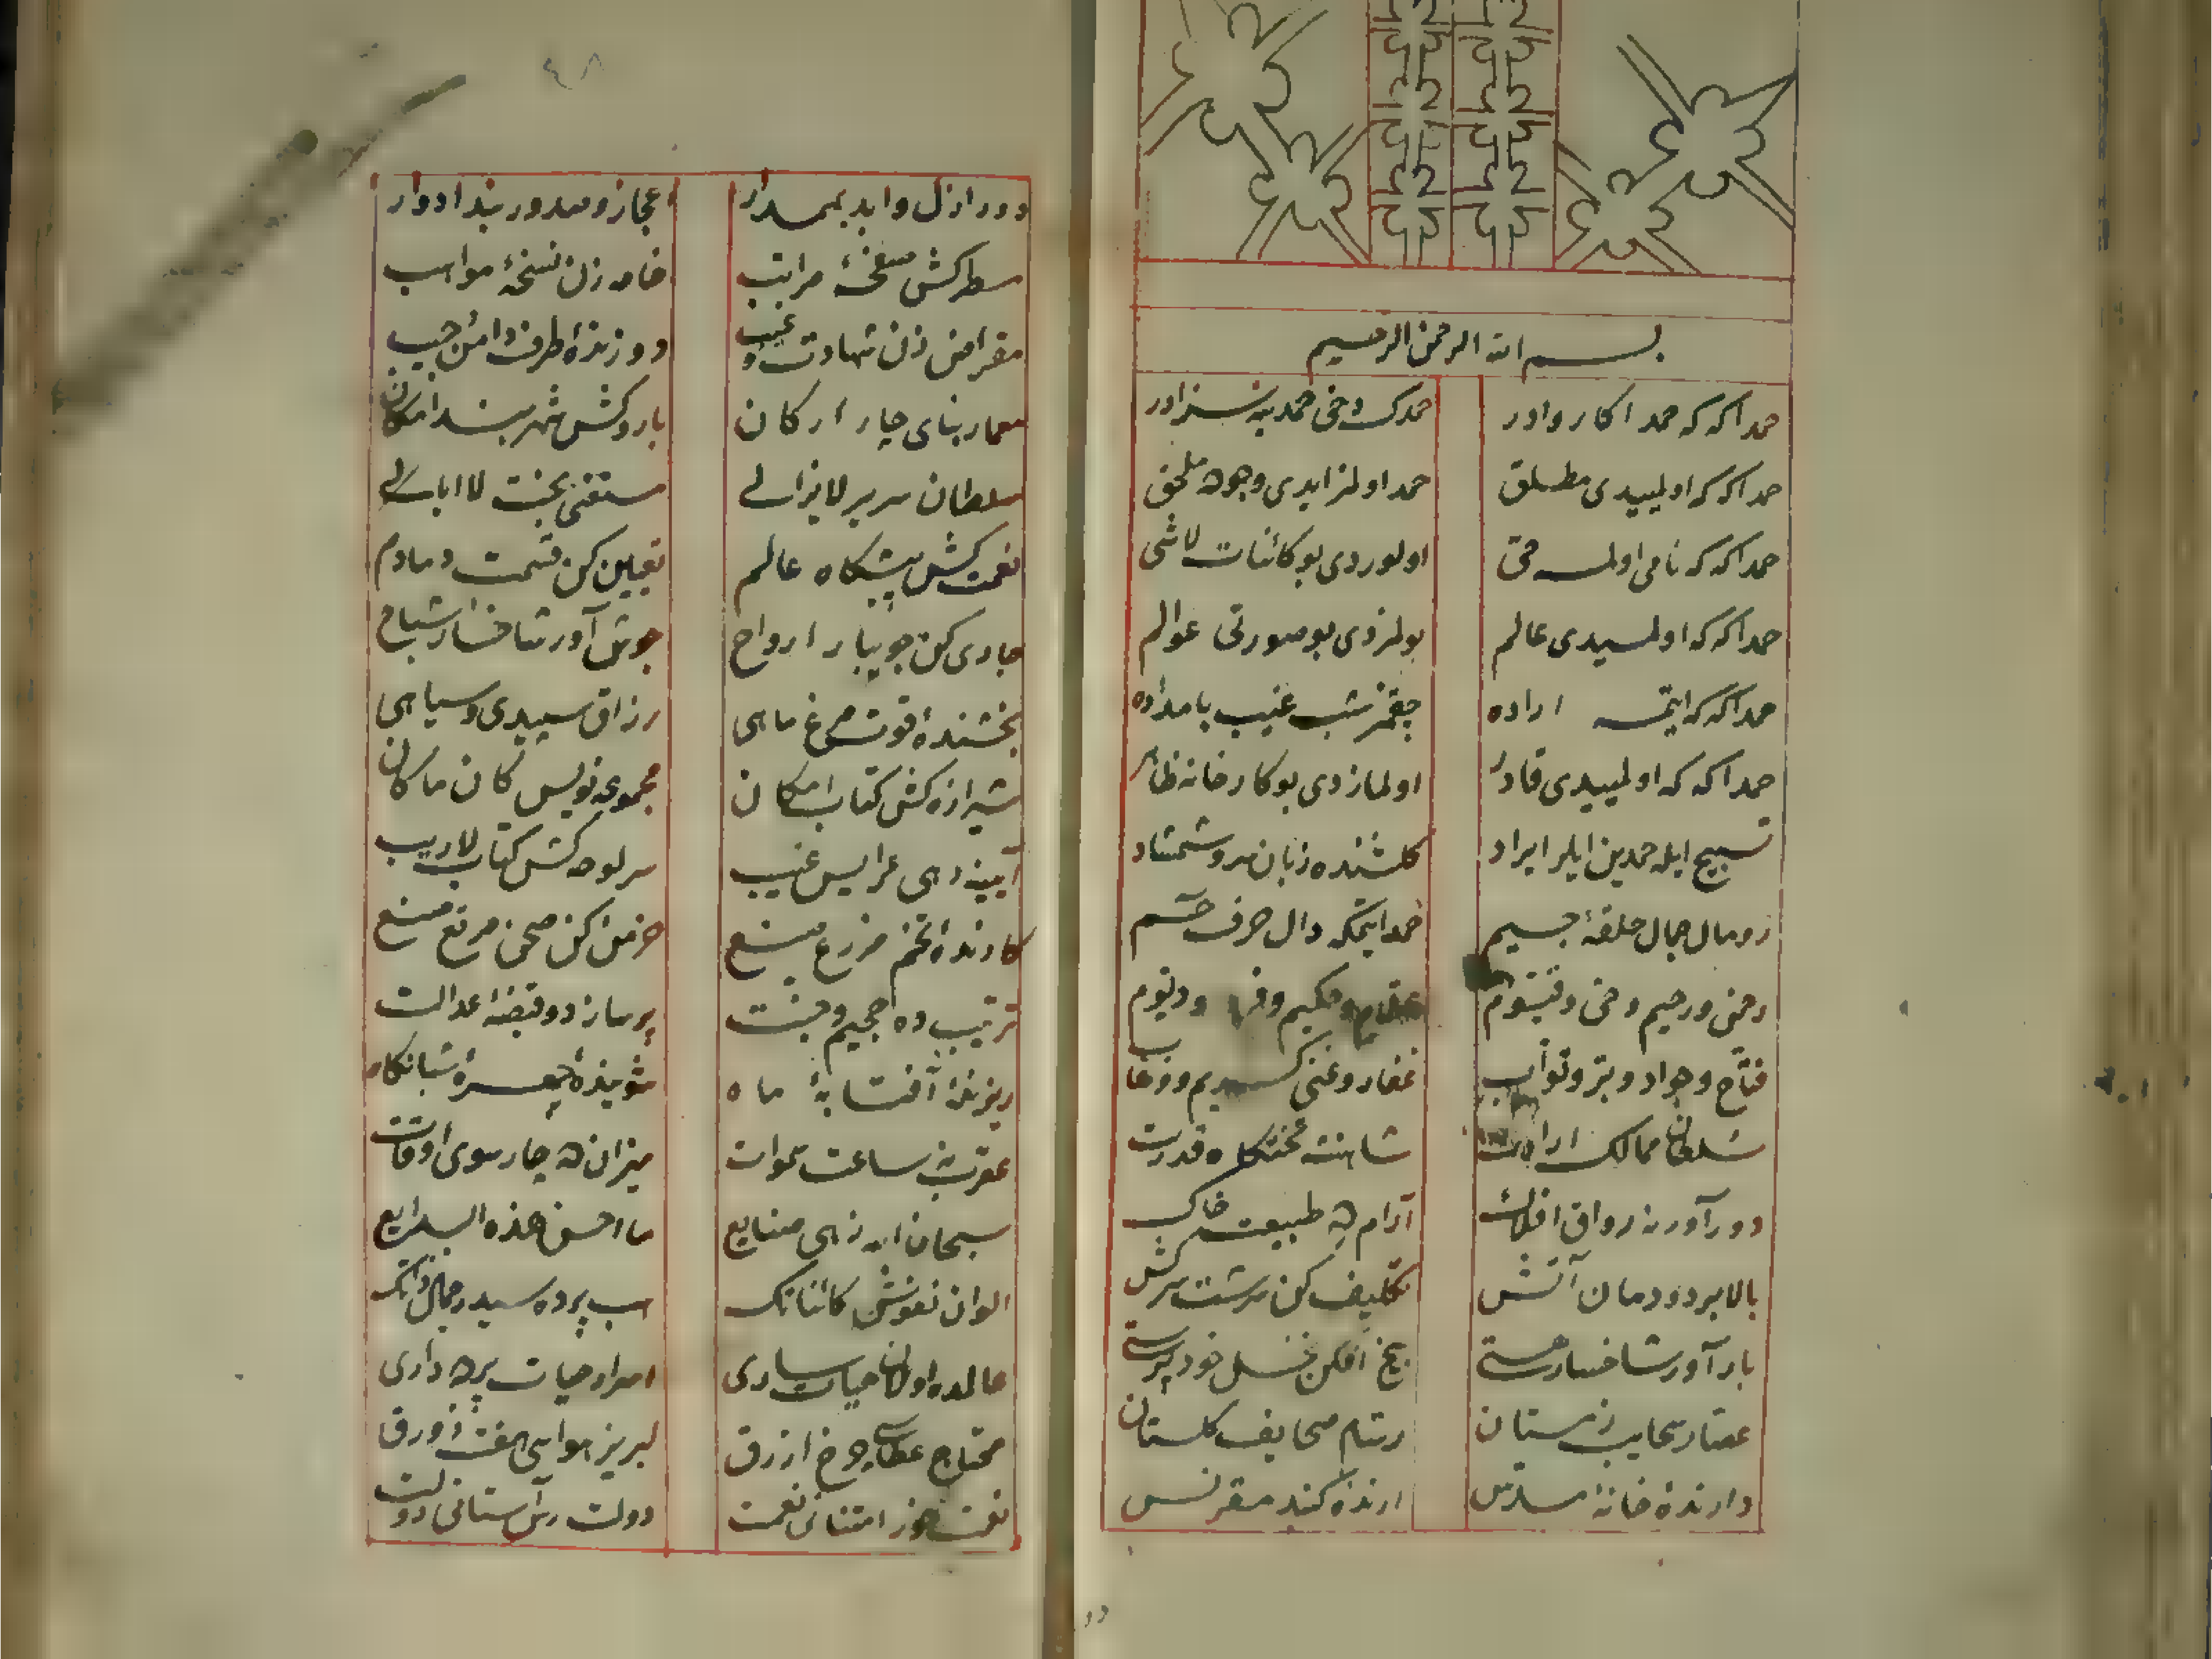 بسم الله الرحمن الرحیم
حمد اکه که حمد اکا روادر حمدک دخی حمدینه سزادر
حمد اکه که اولمییدی مطلق حمد اولمز ایدی وجوده ملحق
حمد اکه که نامی اولمسه حق اولوردی بو کائنات لاشی
حمد اکه که اولمسیدی عالم بولمزدی بو صورتی عوالم
حمد اکه که ایتمسه اراده چقمز شب غیب بامداده
حمد اکه که اولمییدی قادر اولمازدی بو کارخانه ظاهر
تسبیح ایله حمدین ایلر ایراد کلشنده زبان سرو شمشاد
رومال جمال حلقهٔ جسیم حمد ایتمکه دال حرف
رحمن و رحیم و حی و قیوم و حکیم و
فتاح و جواد و بر و تواب غفار و غنی کریم و وهاب
ممالک ارادت قدرت
دور آور نه رواق افلاک آرام ده طبیعت خاک
بالابر دودمان آتش تکلیف کن سرشت سرکش
بار آور شاخسار هستی بیخ افکن نخل خود پرستی
عصار سحایب زمستان رسام صحایف کلستان
دارندهٔ خانهٔ مسدس ارندهٔ کنبد مقرنس
٤٨
دور ازل و ابد بمسدار و صدور بند ادوار
سطرکش صفحهٔ مراتب خامه زن نسخهٔ مواهب
مقراض زن شهادت و غیب دوزندهٔ طرف دامن جیب
معمار بنای چار ارکان باروکش شهربند امکان
سلطان سریر لایزالی مستغنی بخت لاابالی
نعمت کش پیشکاه عالم تعیین کن قسمت دمادم
جاری کن جویبار ارواح جوش آور شاخسار اشباح
بخشندهٔ قوت مرغ ماهی رزاق سپیدی و سیاهی
شیرازه کش کتاب امکان مجموعه نویس کان ماکان
آیینه دهی عرایس غیب سرلوحه کش کتاب لاریب
کارندهٔ تخم مزرع صنع خرمن کن صحن مرتع صنع
ترتیب ده جحیم و جنت پرساز دو قبضهٔ عدالت
ریزندهٔ آفتابهٔ ماه شویندهٔ چهرهٔ شبانکاه
عقرب نه ساعت سموات میزان ده چارسوی اوقات
سبحان الله زهی صنایع ما احسن هذه البدایع
الوان نقوش کائناتک هب پرده سیدر جمال ذاتک
عالمده اولان حیات ساری اسرار حیات پرده داری
محتاج عطاسی چرخ ازرق لبریز هواسی هفت زورق
نعمت خور امتنانی نعمت دولت رس آستانی دولت